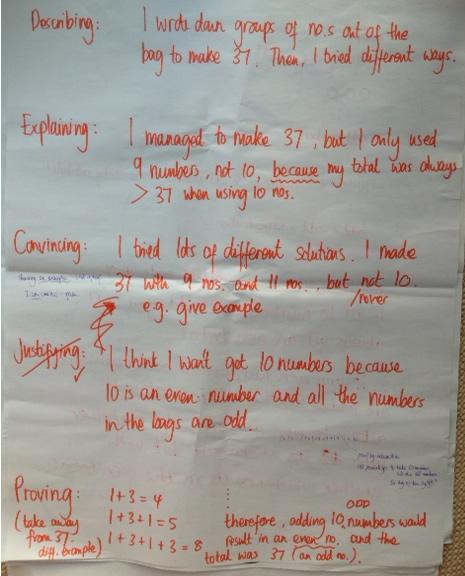 Describing: I wrote down groups of no.s out of the
bag to make 37. Then, I tried different ways.
Explaining: I managed to make 37, but I only used
9 numbers, not 10, because my total was always
> 37 when using 10 nos.
Convincing: I tried lots of different solutions. I made
37 with 9 nos. and 11 nos., but not 10.
/never
e.g. give example
Justifying: I think I won't get 10 numbers because
10 is an even number and all the numbers
in the bags are odd.
Proving: 1+3=4
(take away 1+3+1=5
from 37- 1+3+1+3=8
diff. example)
ODD
therefore, adding 10 numbers would
result in an even no. and the
total was 37 (an odd no.).